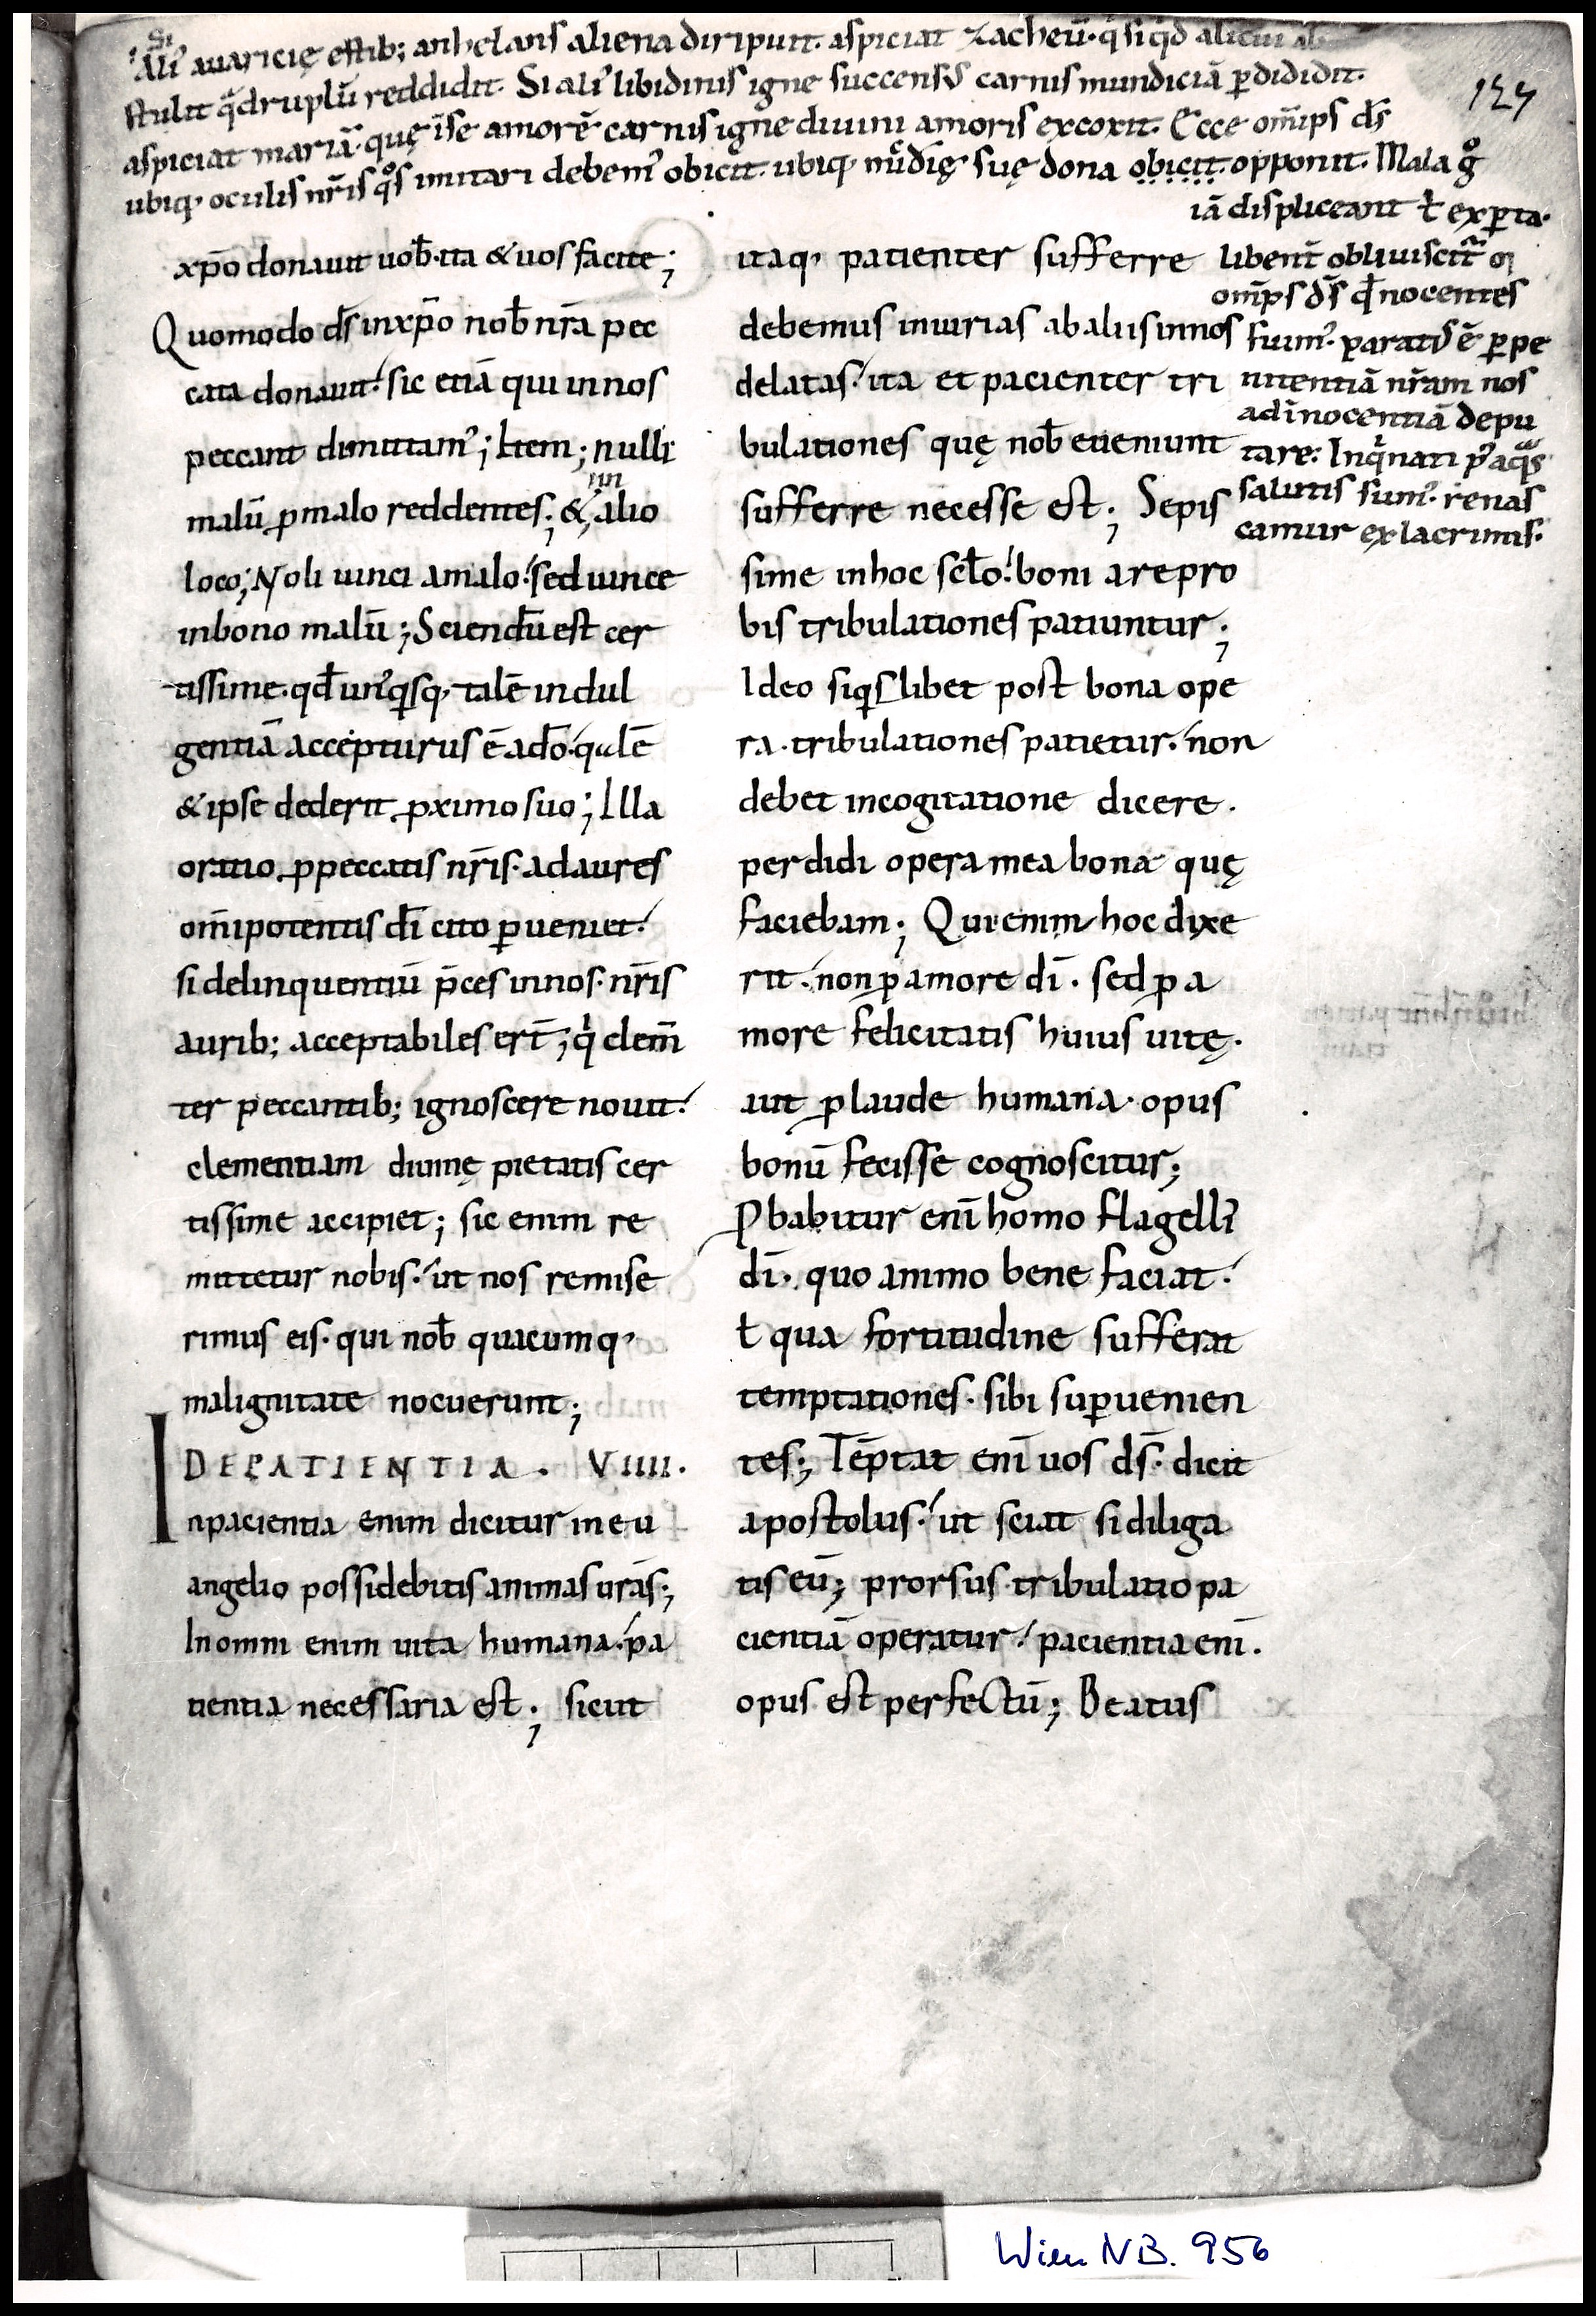 Si
Alī auaricię estib; anhelans aliena diripuit. aspiciat zacheū. q̇ siqd̄ alicui ab
stulit qͣdruplū reddidit. Si aliʼ libidinis igne succensꝰ carnis mundiciā ꝑdididit.
aspiciat mariā. quę īse amorē carnis igne diuini amoris excoxit. Ecce om̄ips ds̄
ubiq; oculis nr̄is qͦs imitari debemʼ obicit. ubiq; mͫdię suę dona obicit. opponit. Mala gͦ
iā displiceant ł exꝑta.
libent̄ obliuiscit᷑
om̄ps ds̄ qd̄ nocentes
fuimʼ. paratꝰ ē ꝑ pe
nitentiā nr̄am nos
ad īnocentiā depu
tare. Inqͥnati pʼ aqͣs
salutis sumʼ. renas
camur ex lacrimis.
124
xp̄o donauit uob̄. ita & uos facite;
Quomodo ds̄ inxp̄o nob̄ nr̄a pec
cata donauit. sic etiā qui in nos
peccant dimittamʼ; Item; nulli
malū ꝓ malo reddentes; & in alio
loco; Noli uinci amalo. sed uince
inbono malū; Sciendū est cer
tissime. qd̄ unʼqͥsq; talē indul
gentiā accepturus ē ado̅. qualē
& ipse dederit ꝓximo suo; Illa
oratio ꝓ peccatis nr̄is. ad aures
om̄ipotentis dī cito ꝑueniet.
si delinquentiū p̄ces innos. nr̄is
aurib; acceptabiles er̄t; qͥ clem̄
ter peccantib; ignoscere nouit.
clementiam diuinę pietatis cer
tissime accipiet; sic enim re
mittetur nobis. ut nos remise
rimus eis. qui nob̄ quacumq;
malignitate nocuerunt;
DE PATIENTIA. VIIII.
Inpacientia enim dicitur in eu
angelio possidebitis animas urās;
In omni enim uita humana. pa
tientia necessaria est; sicut
itaq; patienter sufferre
debemus iniurias ab aliis innos
delatas. ita et pacienter tri
bulationes quę nob̄ eueniunt
sufferre necesse est; Sepis
sime inhoc scl̄o. boni a repro
bis tribulationes patiuntur;
Ideo siqͥslibet post bona ope
ra. tribulationes patietur. non
debet incogitatione dicere.
perdidi opera mea bona quę
faciebam; Qui enim hoc dixe
rit. non ꝓ amore dī. sed ꝓ a
more felicitatis huius uitę.
aut ꝓ laude humana. opus
bonū fecisse cognoscitur;
Ꝓbabitur enī homo flagellis
dī. quo animo bene faciat.
ł qua fortitudine sufferat
temptationes. sibi suꝑuenien
tes; Tēptat enī uos ds̄. dicit
apostolus. ut sciat si diliga
tis eū; prorsus tribulatio pa
cientiā operatur. pacientia enī.
opus est perfectū; Beatus
Wien NB. 956